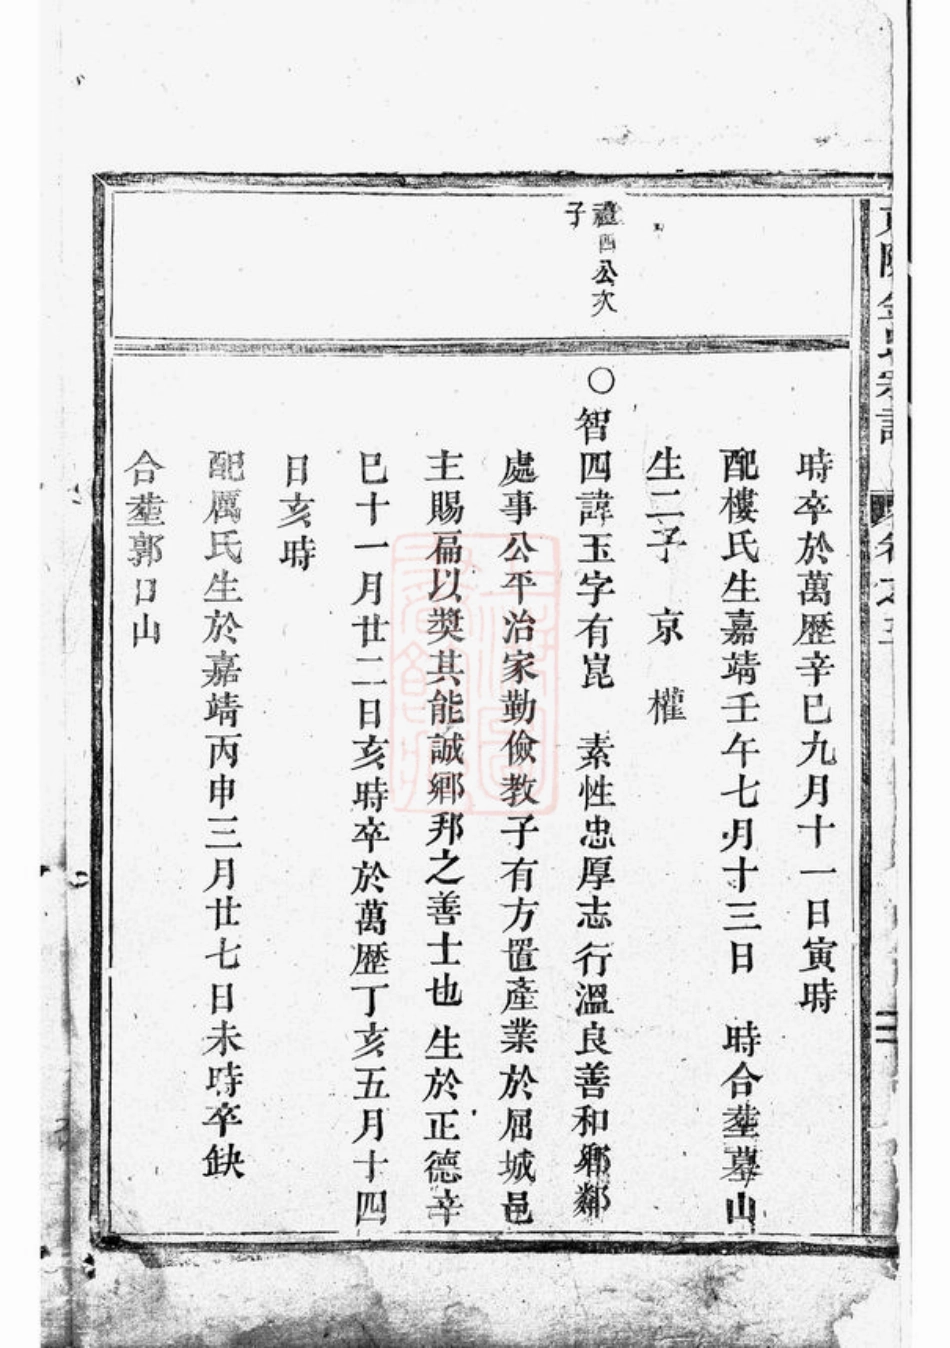 金氏宗譜
卷之五
二
時卒於萬歷辛巳九月十一日寅時
配樓氏生嘉靖壬午七月十三日　時合塟墓山
生二子　京　權
禮四公次
子
○智四諱玉字有崑　素性忠厚志行溫良善和鄉鄰
處事公平治家勤儉教子有方置產業於屈城邑
主賜扁以奬其能誠鄉邦之善士也 生於正德辛
巳十一月廿二日亥時卒於萬歷丁亥五月十四
日亥時
配厲氏生於嘉靖丙申三月廿七日未時卒缺
合塟郭口山